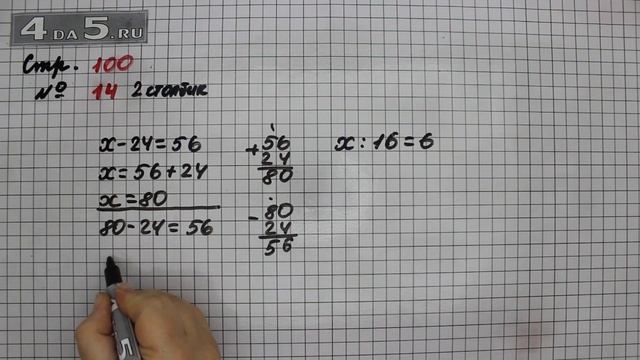 4 DA 5.RU
Стр. 100
№ 14 2 столбик
x - 24 = 56
x = 56 + 24
x = 80
80 - 24 = 56
+ 56
24
80
- 80
24
56
x : 16 = 6